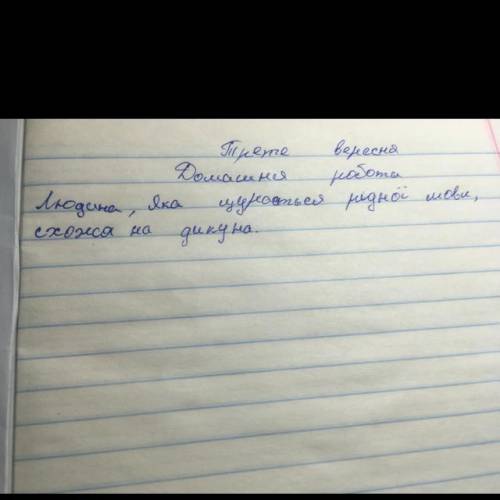 Третє вересня
Домашня робота
Людина, яка цурається рідної мови,
схожа на дикуна.